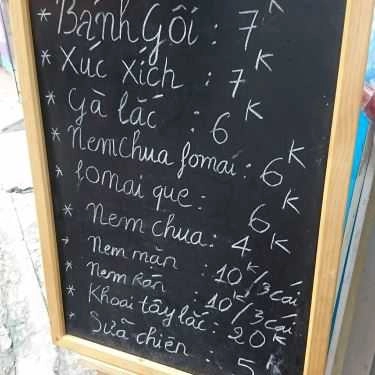 * Bánh Gối : 7K
* Xúc xích : 7K
* Gà lắc : 6K
* Nem chua fomai : 6K
* fomai que : 6K
* Nem chua : 4K
* Nem măn : 10K/3 cái
* Nem Rán : 10K/3 cái
* Khoai tây lắc : 20K
* Sữa chiên : 5K